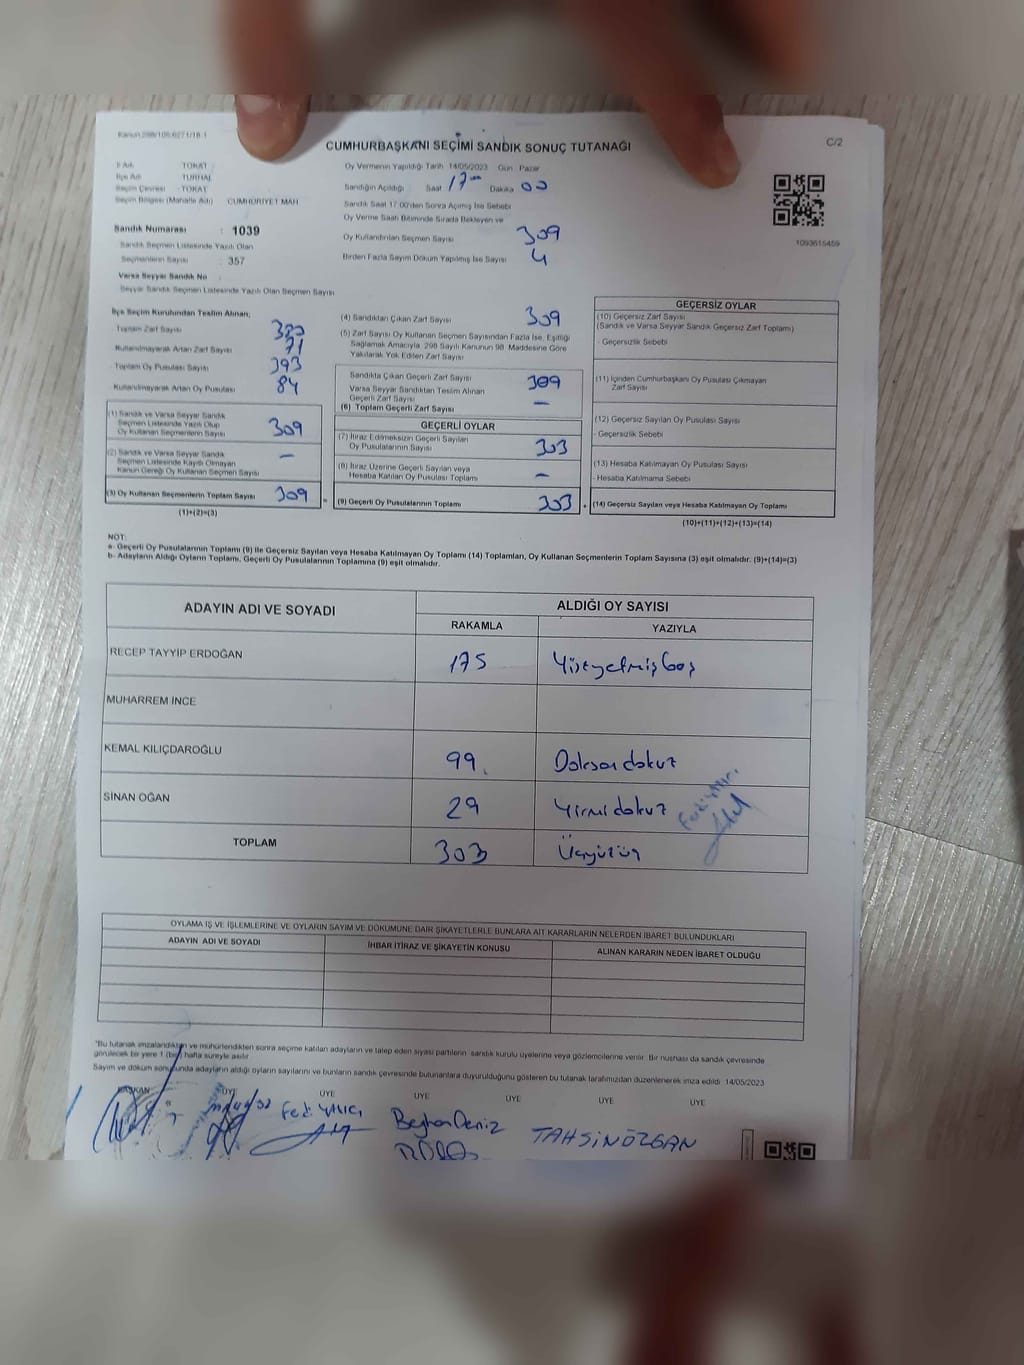 Kanun:298/105:6271/18-1
CUMHURBAŞKANI SEÇİMİ SANDIK SONUÇ TUTANAĞI
C/2
İl Adı : TOKAT
İlçe Adı : TURHAL
Seçim Çevresi : TOKAT
Seçim Bölgesi (Mahalle Adı) CUMHURİYET MAH
Sandık Numarası : 1039
Sandık Seçmen Listesinde Yazılı Olan
Seçmenlerin Sayısı : 357
Varsa Seyyar Sandık No :
Seyyar Sandık Seçmen Listesinde Yazılı Olan Seçmen Sayısı
Oy Vermenin Yapıldığı Tarih 14/05/2023 Gün : Pazar
Sandığın Açıldığı : Saat 17 Dakika 00
Sandık Saat 17:00'den Sonra Açılmış İse Sebebi
Oy Verme Saati Bitiminde Sırada Bekleyen ve
Oy Kullandırılan Seçmen Sayısı 309
Birden Fazla Sayım Döküm Yapılmış İse Sayısı 4
1093615459
İlçe Seçim Kurulundan Teslim Alınan;
Toplam Zarf Sayısı
Kullanılmayarak Artan Zarf Sayısı 71
Toplam Oy Pusulası Sayısı 393
Kullanılmayarak Artan Oy Pusulası 84
(1) Sandık ve Varsa Seyyar Sandık
Seçmen Listesinde Yazılı Olup
Oy Kullanan Seçmenlerin Sayısı 309
(2) Sandık ve Varsa Seyyar Sandık
Seçmen Listesinde Kaydı Olmayan
Kanun Gereği Oy Kullanan Seçmen Sayısı –
(3) Oy Kullanan Seçmenlerin Toplam Sayısı 309 =
(1)+(2)=(3)
(4) Sandıktan Çıkan Zarf Sayısı 309
(5) Zarf Sayısı Oy Kullanan Seçmen Sayısından Fazla İse, Eşitliği
Sağlamak Amacıyla, 298 Sayılı Kanunun 98. Maddesine Göre
Yakılarak Yok Edilen Zarf Sayısı
Sandıkta Çıkan Geçerli Zarf Sayısı 309
Varsa Seyyar Sandıktan Teslim Alınan
Geçerli Zarf Sayısı –
(6) Toplam Geçerli Zarf Sayısı
GEÇERLİ OYLAR
(7) İtiraz Edilmeksizin Geçerli Sayılan
Oy Pusulalarının Sayısı 303
(8) İtiraz Üzerine Geçerli Sayılan veya
Hesaba Katılan Oy Pusulası Toplamı –
(9) Geçerli Oy Pusulalarının Toplamı 303 +
GEÇERSİZ OYLAR
(10) Geçersiz Zarf Sayısı
(Sandık ve Varsa Seyyar Sandık Geçersiz Zarf Toplamı)
- Geçersizlik Sebebi
(11) İçinden Cumhurbaşkanı Oy Pusulası Çıkmayan
Zarf Sayısı
(12) Geçersiz Sayılan Oy Pusulası Sayısı
- Geçersizlik Sebebi
(13) Hesaba Katılmayan Oy Pusulası Sayısı
- Hesaba Katılmama Sebebi
(14) Geçersiz Sayılan veya Hesaba Katılmayan Oy Toplamı
(10)+(11)+(12)+(13)=(14)
NOT:
a- Geçerli Oy Pusulalarının Toplamı (9) ile Geçersiz Sayılan veya Hesaba Katılmayan Oy Toplamı (14) Toplamları, Oy Kullanan Seçmenlerin Toplam Sayısına (3) eşit olmalıdır. (9)+(14)=(3)
b- Adayların Aldığı Oyların Toplamı, Geçerli Oy Pusulalarının Toplamına (9) eşit olmalıdır.
ADAYIN ADI VE SOYADI ALDIĞI OY SAYISI
RAKAMLA YAZIYLA
RECEP TAYYİP ERDOĞAN 175 Yüzyetmişbeş
MUHARREM İNCE
KEMAL KILIÇDAROĞLU 99 Doksandokuz
SİNAN OĞAN 29 Yirmidokuz
TOPLAM 303 Üçyüzüç
OYLAMA İŞ VE İŞLEMLERİNE VE OYLARIN SAYIM VE DÖKÜMÜNE DAİR ŞİKAYETLERLE BUNLARA AİT KARARLARIN NELERDEN İBARET BULUNDUKLARI
ADAYIN ADI VE SOYADI İHBAR İTİRAZ VE ŞİKAYETİN KONUSU ALINAN KARARIN NEDEN İBARET OLDUĞU
*Bu tutanak imzalandıktan ve mühürlendikten sonra seçime katılan adayların ve talep eden siyasi partilerin sandık kurulu üyelerine veya gözlemcilerine verilir. Bir nüshası da sandık çevresinde
görülecek bir yere 1 (bir) hafta süreyle asılır.
Sayım ve döküm sonucunda adayların aldığı oyların sayılarını ve bunların sandık çevresinde bulunanlara duyurulduğunu gösteren bu tutanak tarafımızdan düzenlenerek imza edildi. 14/05/2023
BAŞKAN ÜYE ÜYE ÜYE ÜYE ÜYE ÜYE
Beyhan Deniz TAHSİN ÖZGAN